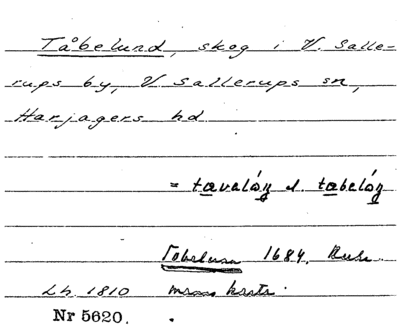 Tåbelund, skog i V. Salle-
rups by, V Sallerups sn,
Harjagers hd
= tavalóŋ el. tabelóŋ
1684.
Lh. 1810
Nr 5620.